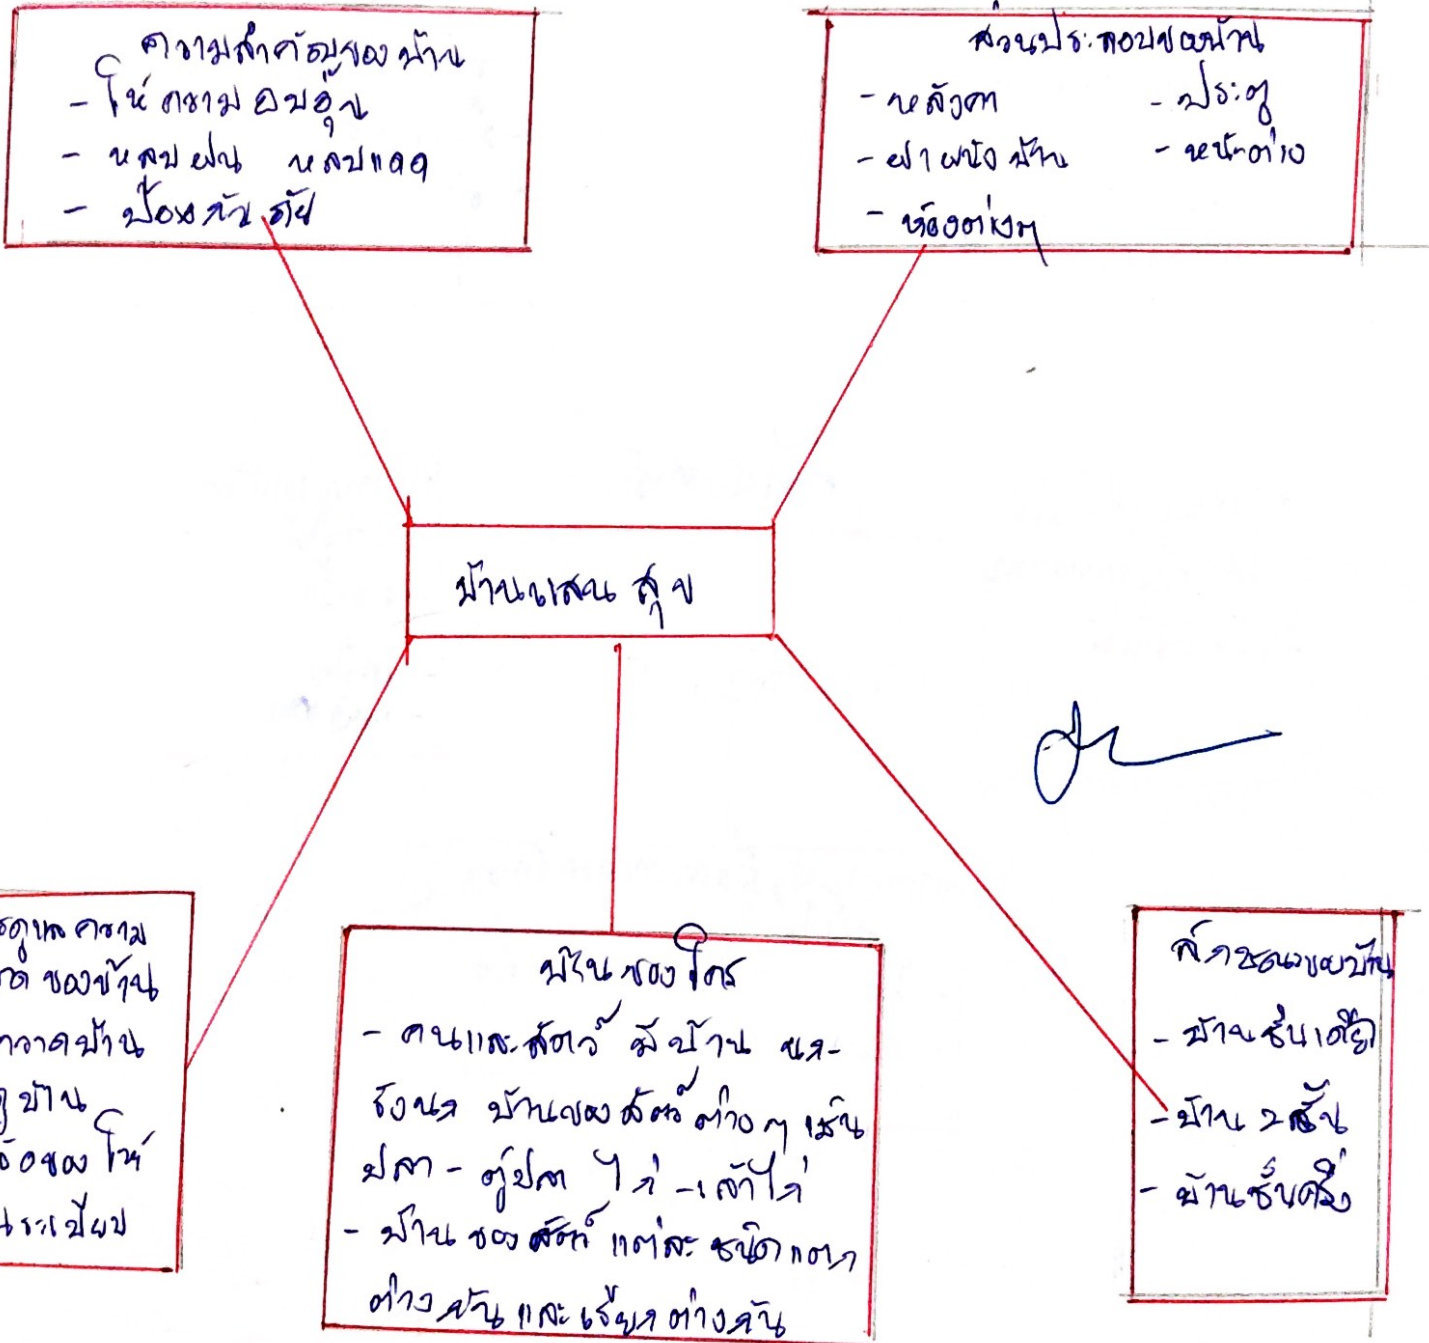 ความสำคัญของบ้าน
- ให้ความอบอุ่น
- หลบฝน หลบแดด
- ป้องกันภัย
ส่วนประกอบของบ้าน
- หลังคา - ประตู
- ฝาผนังบ้าน - หน้าต่าง
- ห้องต่างๆ
บ้านแสนสุข
ดูแลความ
ของบ้าน
กวาดบ้าน
บ้าน
ของให้
ระเบียบ
บ้านของใคร
- คนและสัตว์ มีบ้าน นก-
รังนก บ้านของสัตว์ต่างๆ เช่น
ปลา - ตู้ปลา ไก่ - เล้าไก่
- บ้านของสัตว์แต่ละชนิดแตก
ต่างกันและเรียกต่างกัน
ลักษณะของบ้าน
- บ้านชั้นเดียว
- บ้าน 2 ชั้น
- บ้านชั้นครึ่ง